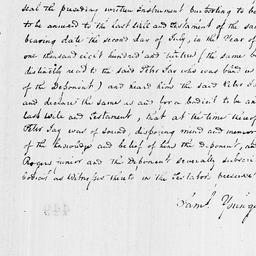 seal the preceding written Instrument purporting to be
to be annexed to the last will and testament of the sai
bearing date the second day of July, in the Year of
one thousand eight hundred and twelve (the same b
distinctly read to the said Peter Jay who was blind
of the Deponent) and heard him the said Peter Ja
and declare the same as and for a Codicil to be an
Last Will and Testament, that at the time thereof
Peter Jay was of sound, disposing mind and memor
of the knowledge and belief of him the Deponent, an
Rogers junior and the Deponent severally subscri
Codicil as Witnesses thereto in the Testators presence
Saml Youngs